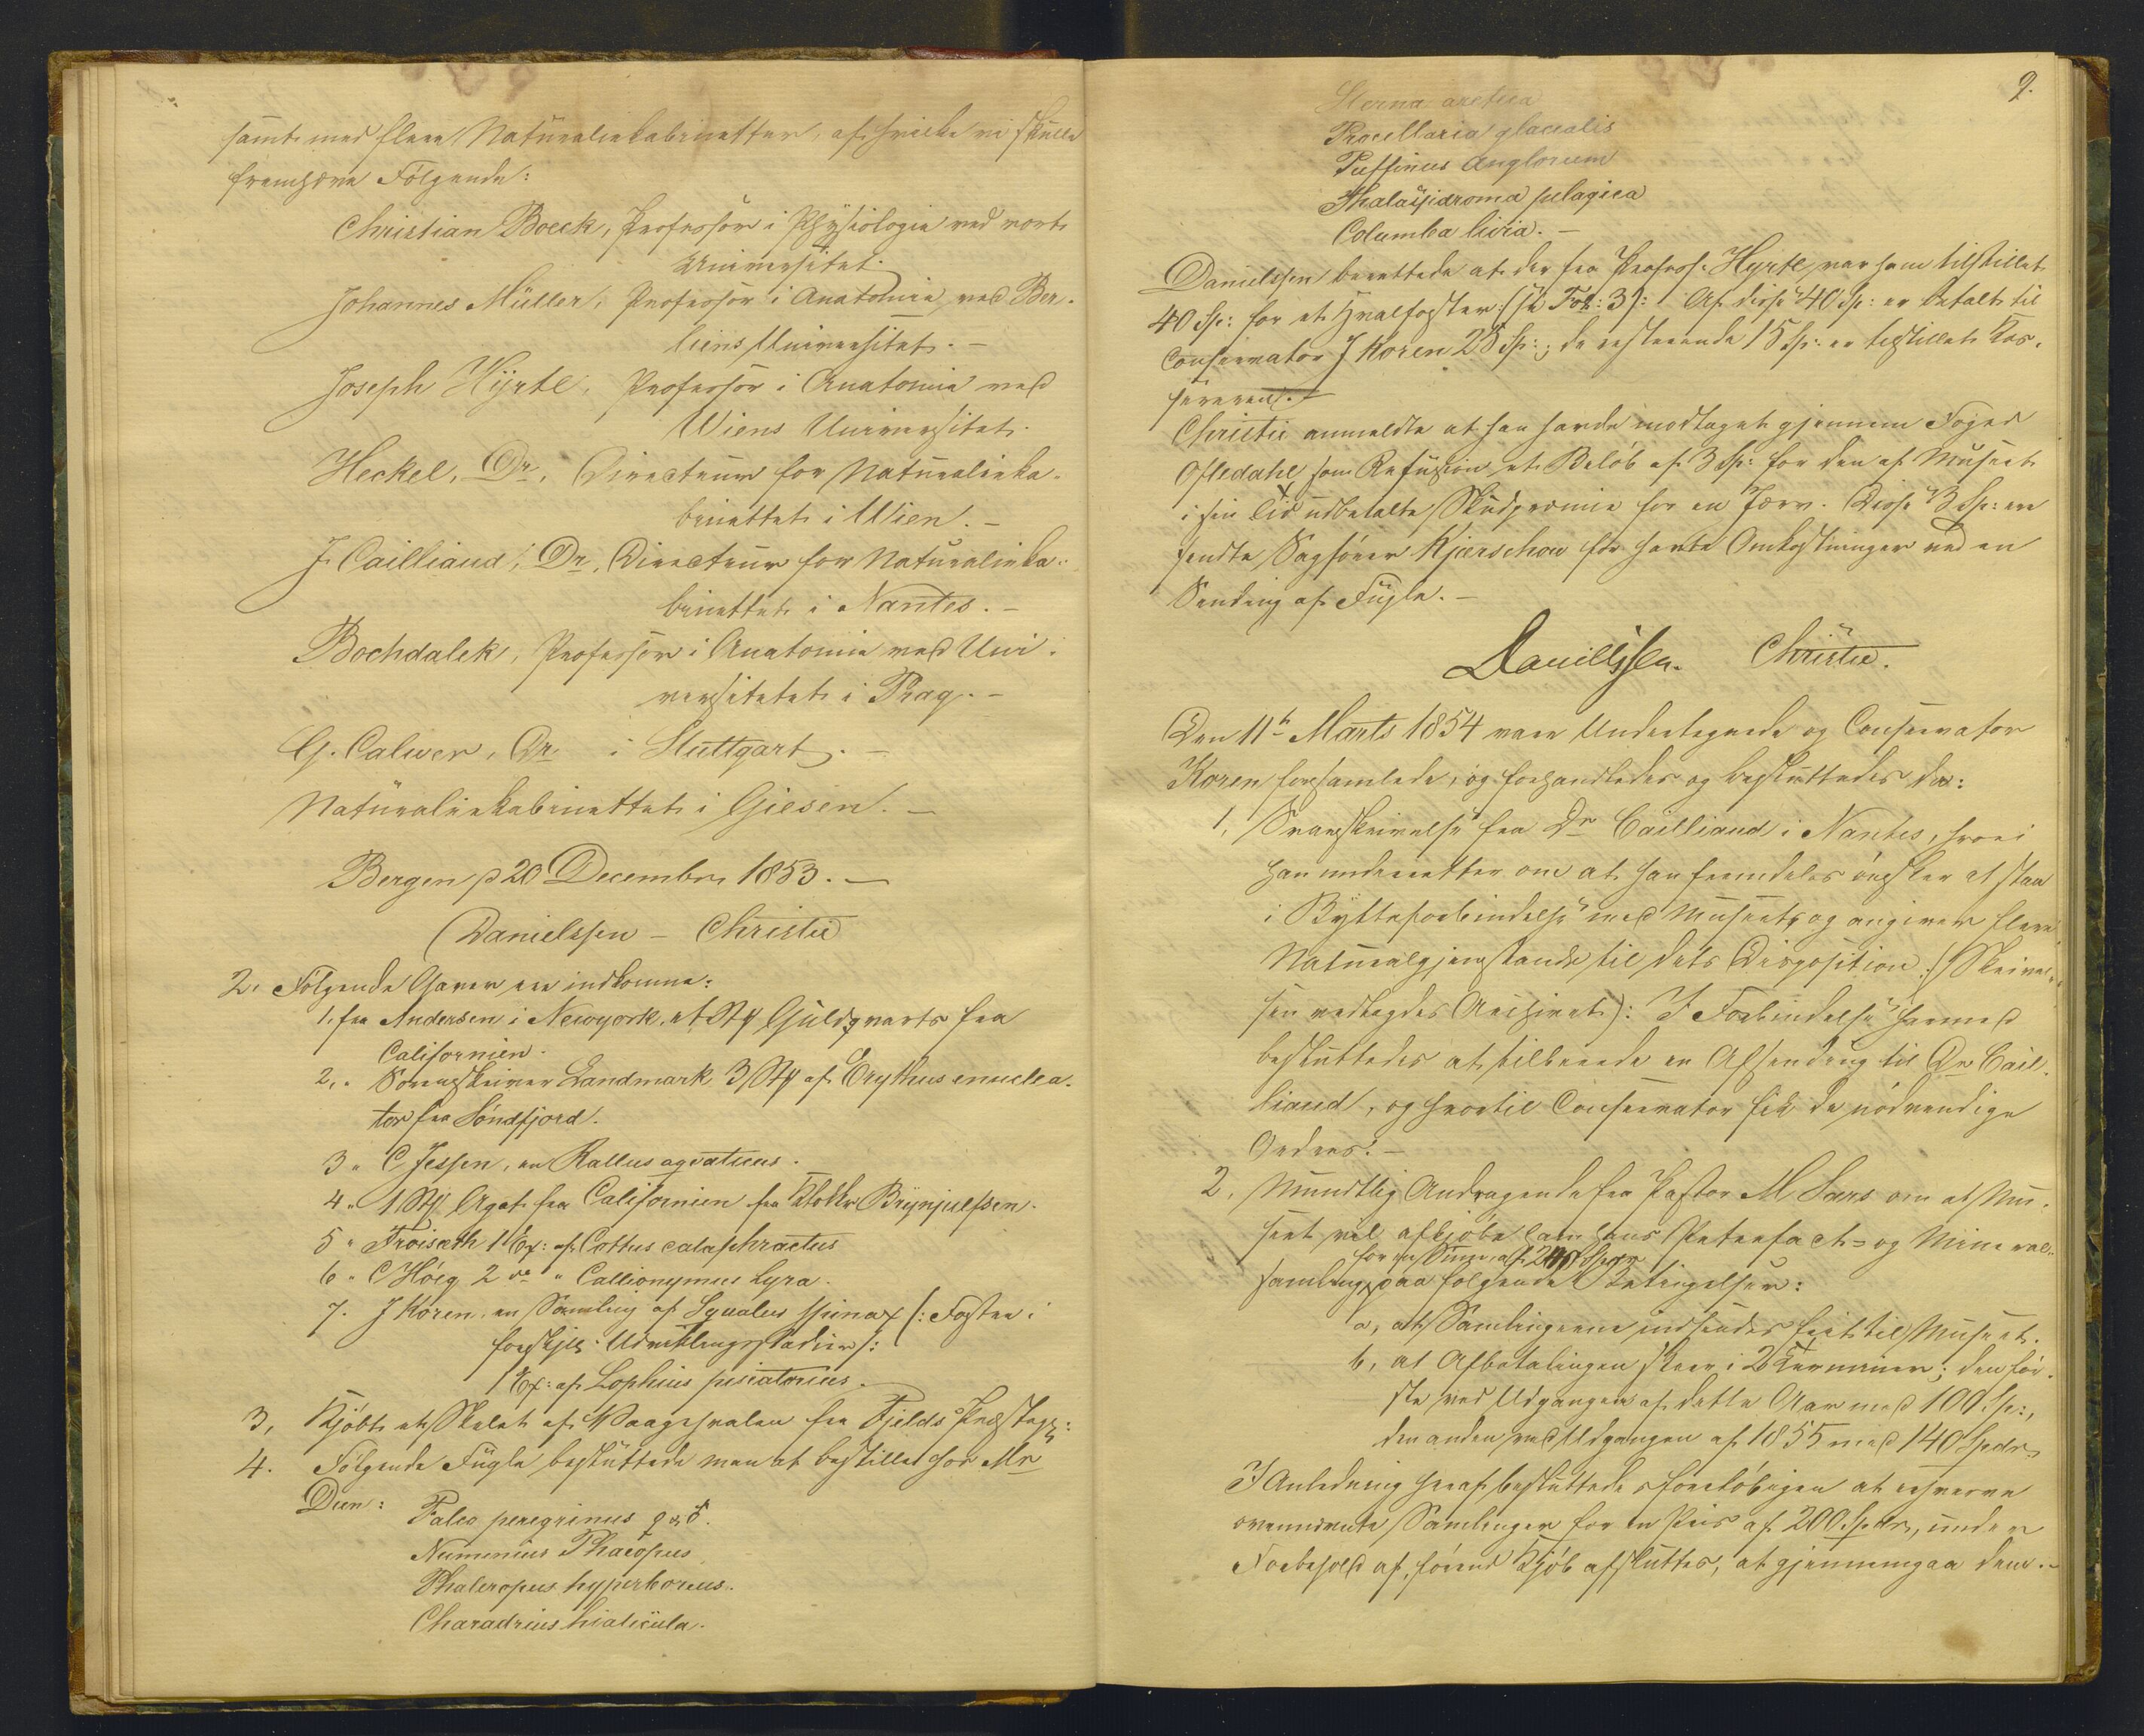 samt med flere Naturaliekabinetter, af hvilke vi skulle
fremhæve Følgende:
Christian Boeck, Professor i Physiologie ved vort
Universitet.
Johannes Müller, Professor i Anatomie ved Ber-
lins Universitet. –
Joseph Hyrtl, Professor i Anatomie ved
Wiens Universitet.
Heckel, Dr, Directeur for Naturalieka-
binettet i Wien. –
J. Cailliaud, Dr, Directeur for Naturalieka-
binettet i Nantes. –
Bochdalek, Professor i Anatomie ved Uni-
versitetet i Prag. –
G. Calwer, Dr i Stuttgart. –
Naturaliekabinettet i Giesen. –
Bergen d 20 Decembr 1853. –
Danielssen – Christie
2. Følgende Gaver ere indkomne:
1, fra Andersen i Newyork, et Stk Guldqvarts fra
Californien.
2, " Sorenskriver Landmark 3 Stk af Erythus enuclea-
tor fra Søndfjord.
3 " C Jessen, en Rallus aqvaticus.
4 " 1 Stk Agat fra Californien fra Brynjulfsen.
5 " Froiseth 1 Ex: af Cottus cataphractus
6 " C Høeg 2 do " Callionymus Lyra.
7. J Koren, en Samling af Squalus spinax (: Fostre i
forskjel. Udviklingsstadier):
1 Ex: af Lophius piscatorius.
3, Kjøbt et Skelet af Vaagehvalen fra Fjelds Præstegj:
4. Følgende Fugle besluttede man at bestille hos Mr
Dun:
Falco peregrinus ♀ & ♂.
Numenius Phæopus
Phaleropus hyperboreus.
Charadrius hiaticula.
9.
Sterna arctica
Procellaria glacialis
Puffinus Anglorum
Thalassidroma pelagica
Columba livia. –
Danielssen berettede at der fra Profess. Hyrtl var ham tilstillet
40 Sp: for et Hvalfoster (se Fol: 3): Af disse 40 Sp: er betalt til
Conservator J Koren 25 Sp:; de resterende 15 Sp: er tilstillet Kas-
sereren. –
Christie anmeldte at han havde modtaget gjennem Foged
Oftedahl som Refusion et Beløb af 3 Sp: for den af Museet
i sin Tid udbetalte Skudpremie for en Jærv. Disse 3 Sp: ere
sendte Sagfører Kjerschow for havte Omkostninger ved en
Sending af Fugle. –
Danielssen. Christie.
Den 11te Marts 1854 vare Undertegnede og Conservator
Koren forsamlede, og forhandledes og besluttedes da:
1, Svarskrivelse fra Dr Cailliaud i Nantes, hvori
han underretter om at han fremdeles ønsker at staa
i Bytteforbindelse med Museet, og angiver flere
Naturalgjenstande til dets Disposition. (Skrivel-
sen vedlagdes Archivet): I Forbindelse hermed
besluttedes at tilberede en Afsending til Dr Cail-
liaud, og hvortil Conservator fik de nødvendige
Ordres. –
2, Mundtlig Andragende fra Pastor M Sars om at Mu-
seet vil afkjøbe ham hans Petrefact- og Mineral-
for en Summe af 240 Spdr
samling paa følgende Betingelser:
a, at Samlingerne indsendes frit til Museet.
b, at Afbetalingen skeer i 2 Terminer; den før-
ste ved Udgangen af dette Aar med 100 Sp:,
den anden ved Udgangen af 1855 med 140 Spdr.
I Anledning heraf besluttedes foreløbigen at reservere
ovennævnte Samlinger for en Pris af 200 Spdr, under
Forbehold af, førend Kjøb afsluttes, at gjennemgaa dem. –